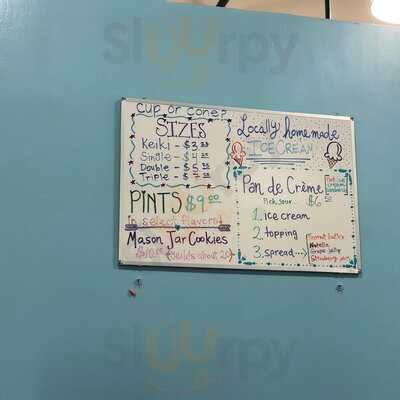 cup or cone?
SIZES
Keiki - $3
Single - $4
Double - $5
Triple - $
PINTS $9.00
in select flavors!
Mason Jar Cookies
(builds about 20)
Locally homemade
ICE CREAM
Pan de Crème
Pick your
$6
1. ice cream
2. topping
3. spread...
Peanut butter
Nutella
Grape jelly
Strawberry jam
slurrpy
slurrpy